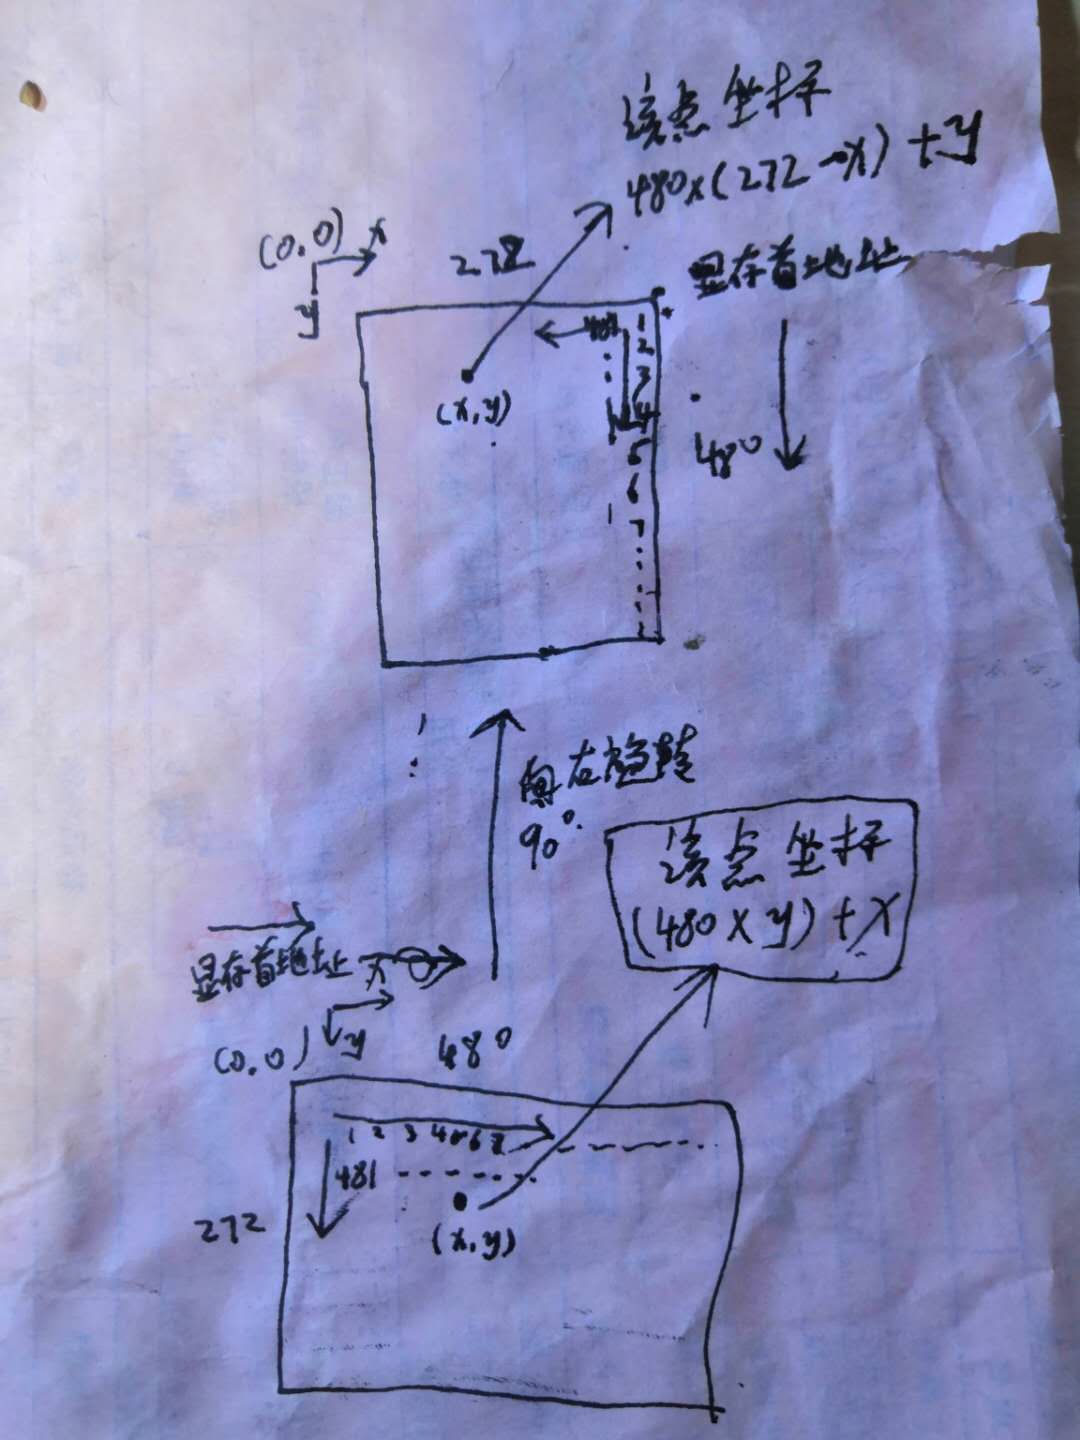 该点坐标
480x(272-x)+y
(0,0) x
y
272
显存首地址
481
1
2
3
4
5
6
7
(x,y)
480
向右旋转
90°
该点坐标
(480xy)+x
显存首地址 x
(0,0) y
480
1 2 3 4 5 6 7
481
272
(x,y)